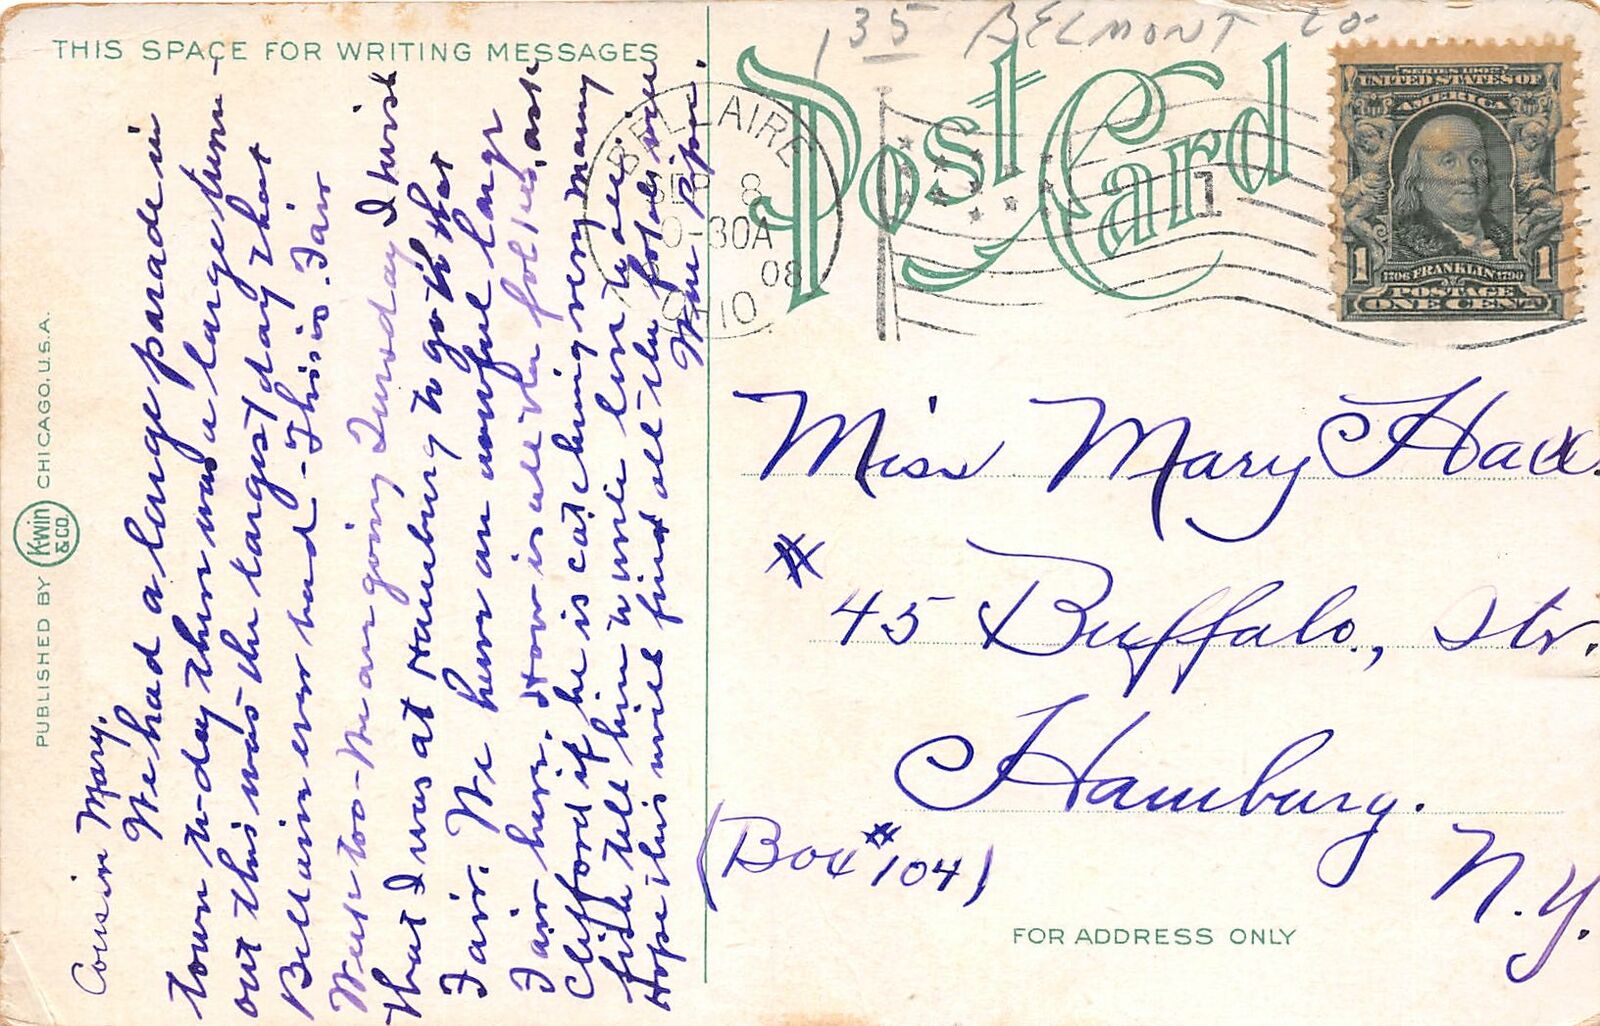 135 BELMONT CO-
THIS SPACE FOR WRITING MESSAGES
Post Card
BELLAIRE
SEP 8
10-30A
08
OHIO
1
SERIES 1902
UNITED STATES OF
AMERICA
1706 FRANKLIN 1790
1 POSTAGE 1
ONE CENT
PUBLISHED BY K-WIN & CO. CHICAGO, U.S.A.
Cousin Mary,
We had a large parade in
town to-day there was a large turn-
out this was the largest day that
Bellaire ever had - This is Fair
Week too - We are going Thursday I wish
that I was at Hamburg to go th that
Fair. We have an awful large
Fair here. How is all the folkes, ask
Clifford if he is catching very many
fish tell him to write
Hope this will find all the folks well
Miss Mary Hall.
# 45 Buffalo., Str.
Hamburg.
(Box #104)
N.Y.
FOR ADDRESS ONLY